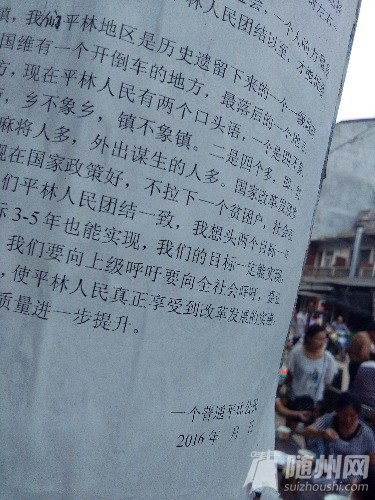 人民团结以至，
镇，我们平林地区是历史遗留下来的一个
国维有一个开倒车的地方，最落后的一个地
方，现在平林人民有两个口头语，一个是四不象，
乡不象乡，镇不象镇。二是四个多，
麻将人多，外出谋生的人多。国家改革
现在国家政策好，不拉下一个贫困户，社会
们平林人民团结一致，我想头两个目标一
标3-5年也能实现，我们的目标一定能实现。
，我们要向上级呼吁要向全社会呼吁，
，使平林人民真正享受到改革发展的实惠
质量进一步提升。
一个普通平林公民
2016年 月 日
随州网
suizhoushi.com